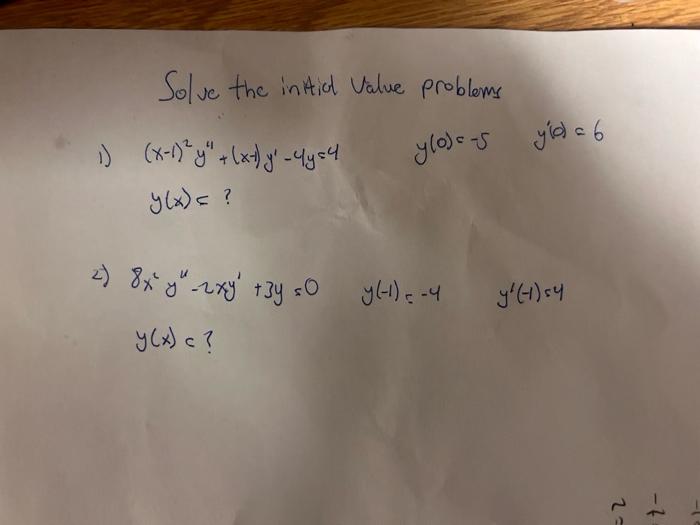 Solve the initial value problems
1) (x-1)² y" + (x-1) y' - 4y = 4 y(0) = -5 y'(0) = 6
y(x) = ?
2) 8x² y" - 2xy' + 3y = 0 y(-1) = -4 y'(-1) = 4
y(x) = ?